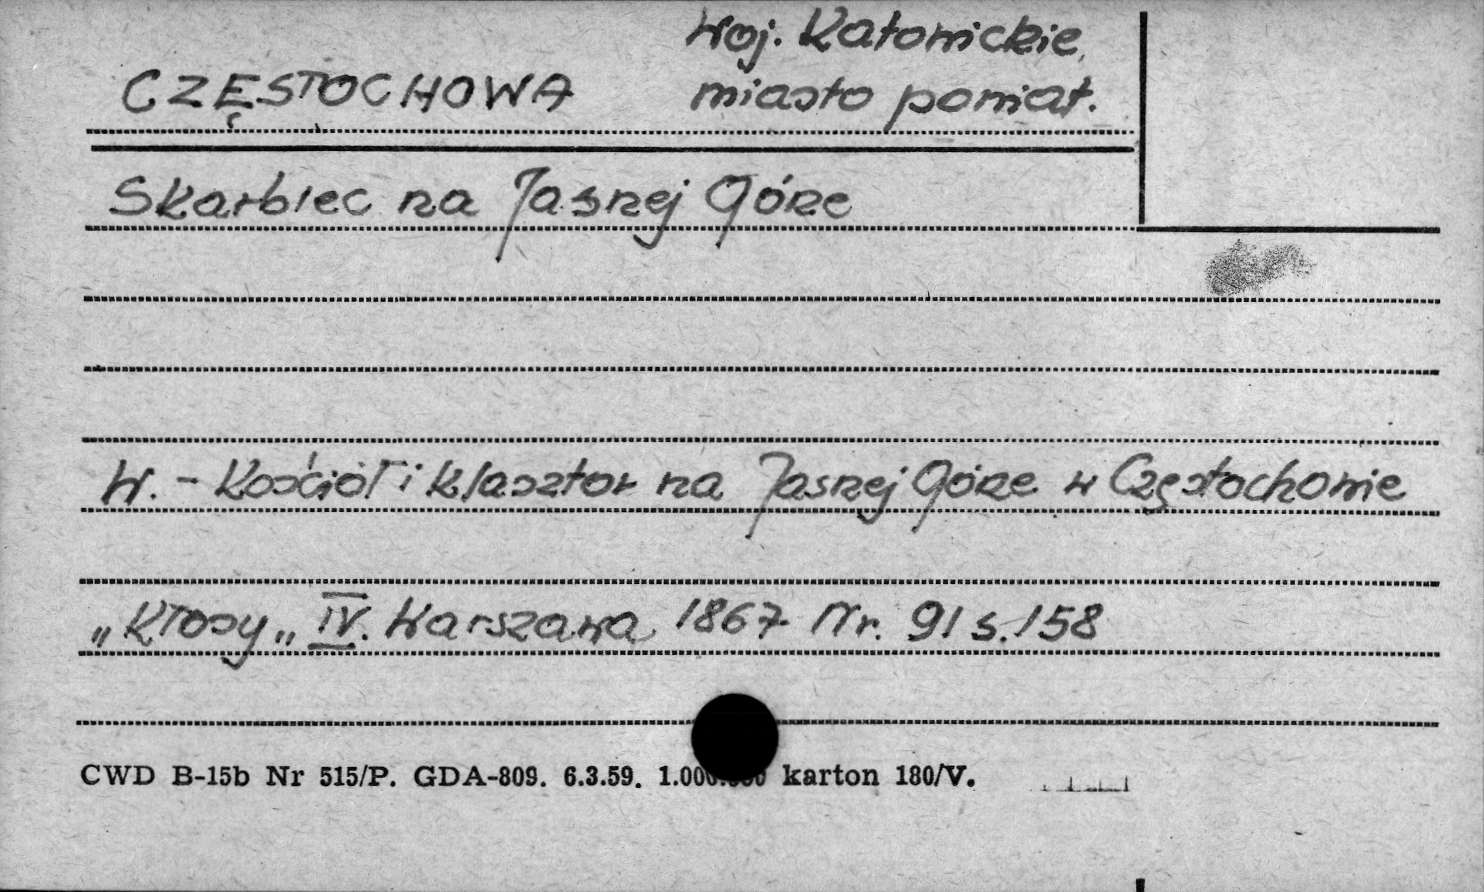 woj. Katowickie,
CZĘSTOCHOWA miasto powiat.
Skarbiec na Jasnej Górze
W. - Kościół i klasztor na Jasnej Górze w Częstochowie
„Kłosy„ IV. Warszawa 1867 Nr. 91 s. 158
CWD B-15b Nr 515/P. GDA-809. 6.3.59. 1.000.000 karton 180/V.